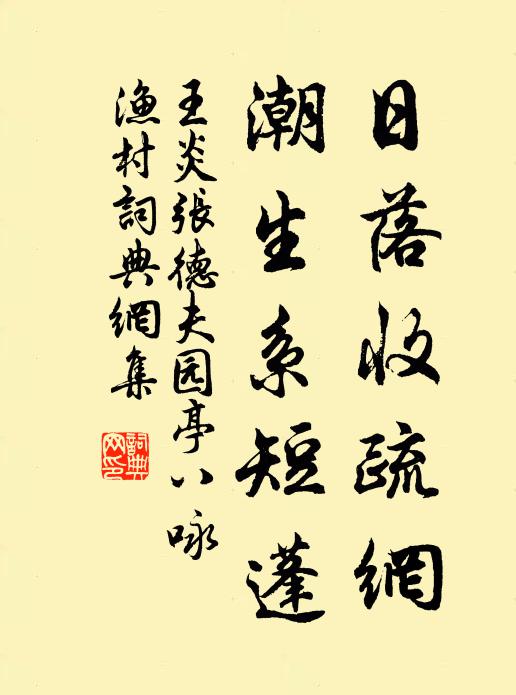 日落收疏網
潮生系短蓬
王炎張德夫园亭八咏
漁村詞典網集
詞典网印